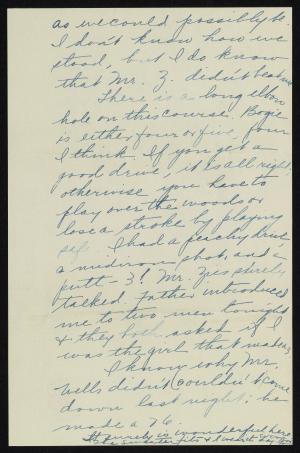 as we could possibly be.
I don't know how we
stood, but I do know
that Mr. Z. didn't beat me
There is a long elbow
hole on this course. Bogie
is either four or five, four
I think. If you get a
good drive, it is all right,
otherwise you have to
play over the woods or
lose a stroke by playing
safe. I had a peachy drive
a midiron shot, and a
putt - 3! Mr. Z
talked. Father introduced
me to two men tonight
& they both asked if I
was the girl that made 3
I know why Mr.
Wells didn't (couldn't) come
down last night; he
made a 76.
It surely is wonderful here
the sweater fits & I